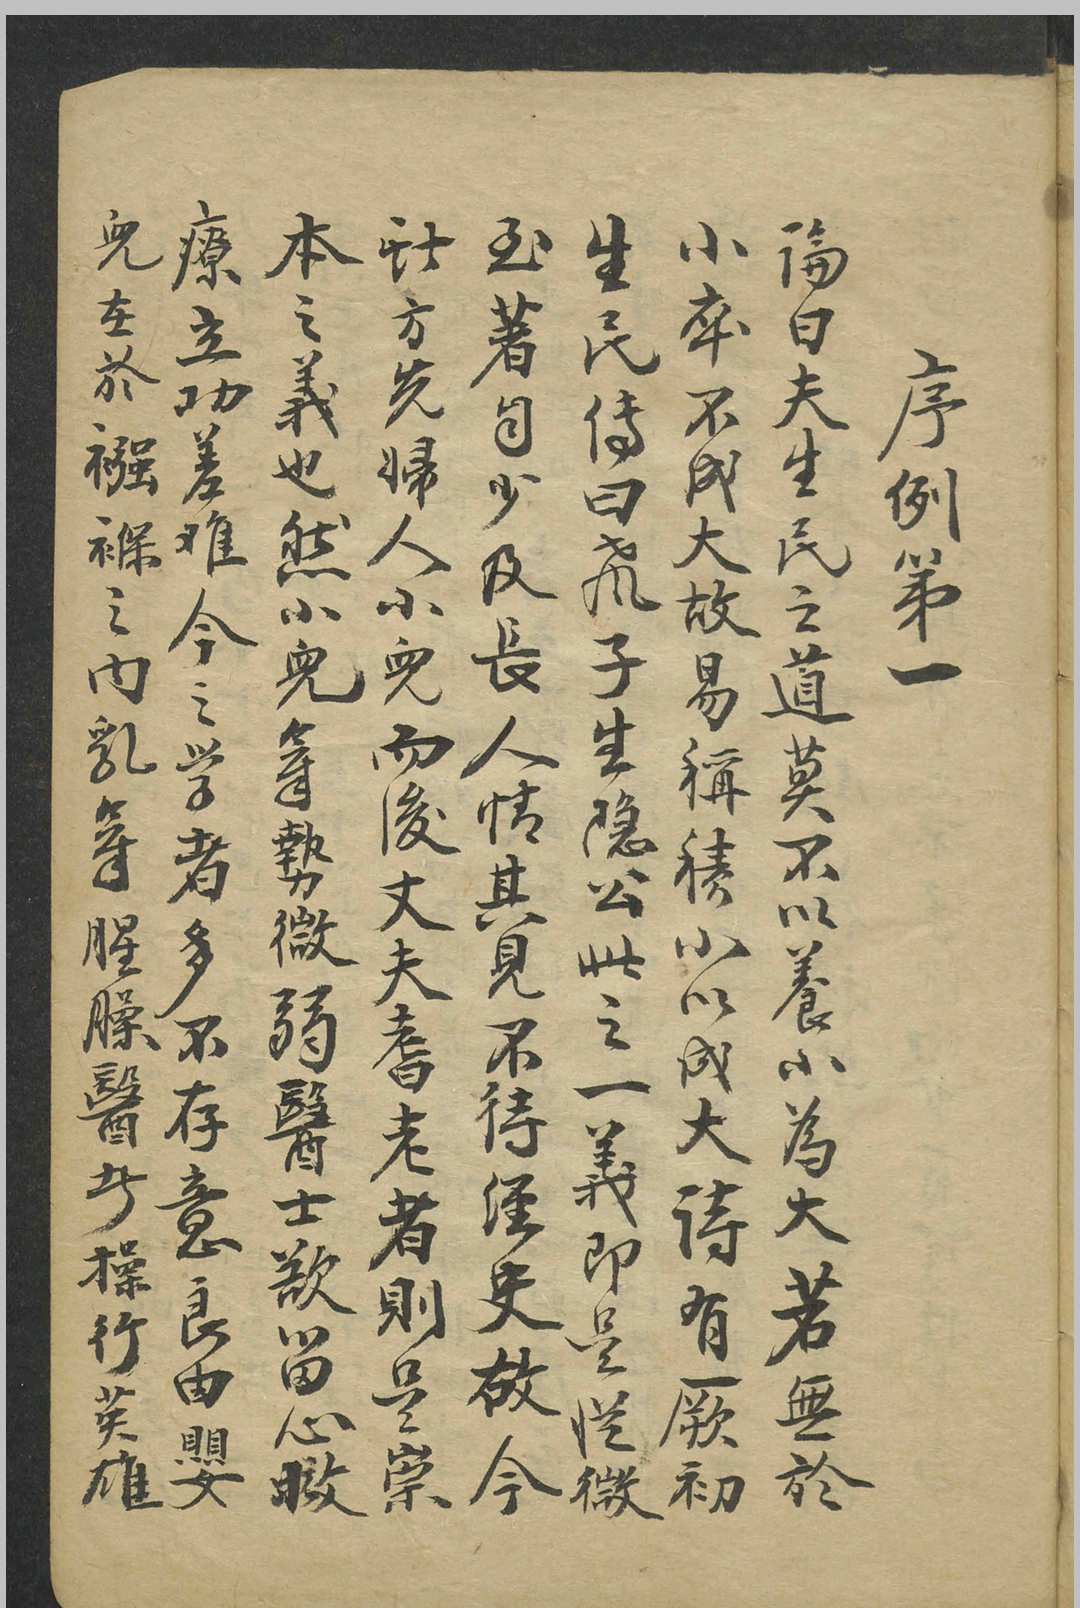 序例第一
論曰夫生民之道莫不以養小為大若無於
小卒不成大故易稱積小以成大詩有厥初
生民傳曰飛子生隱公此之一義即是從微
至著自少及長人情其見不待經史故今
此方先婦人小兒而後丈夫耆老者則是崇
本之義也然小兒氣勢微弱醫士欲留心
療立功差难今之学者多不存意良由嬰
兒在於襁褓之内乳氣腥臊醫者操行英雄